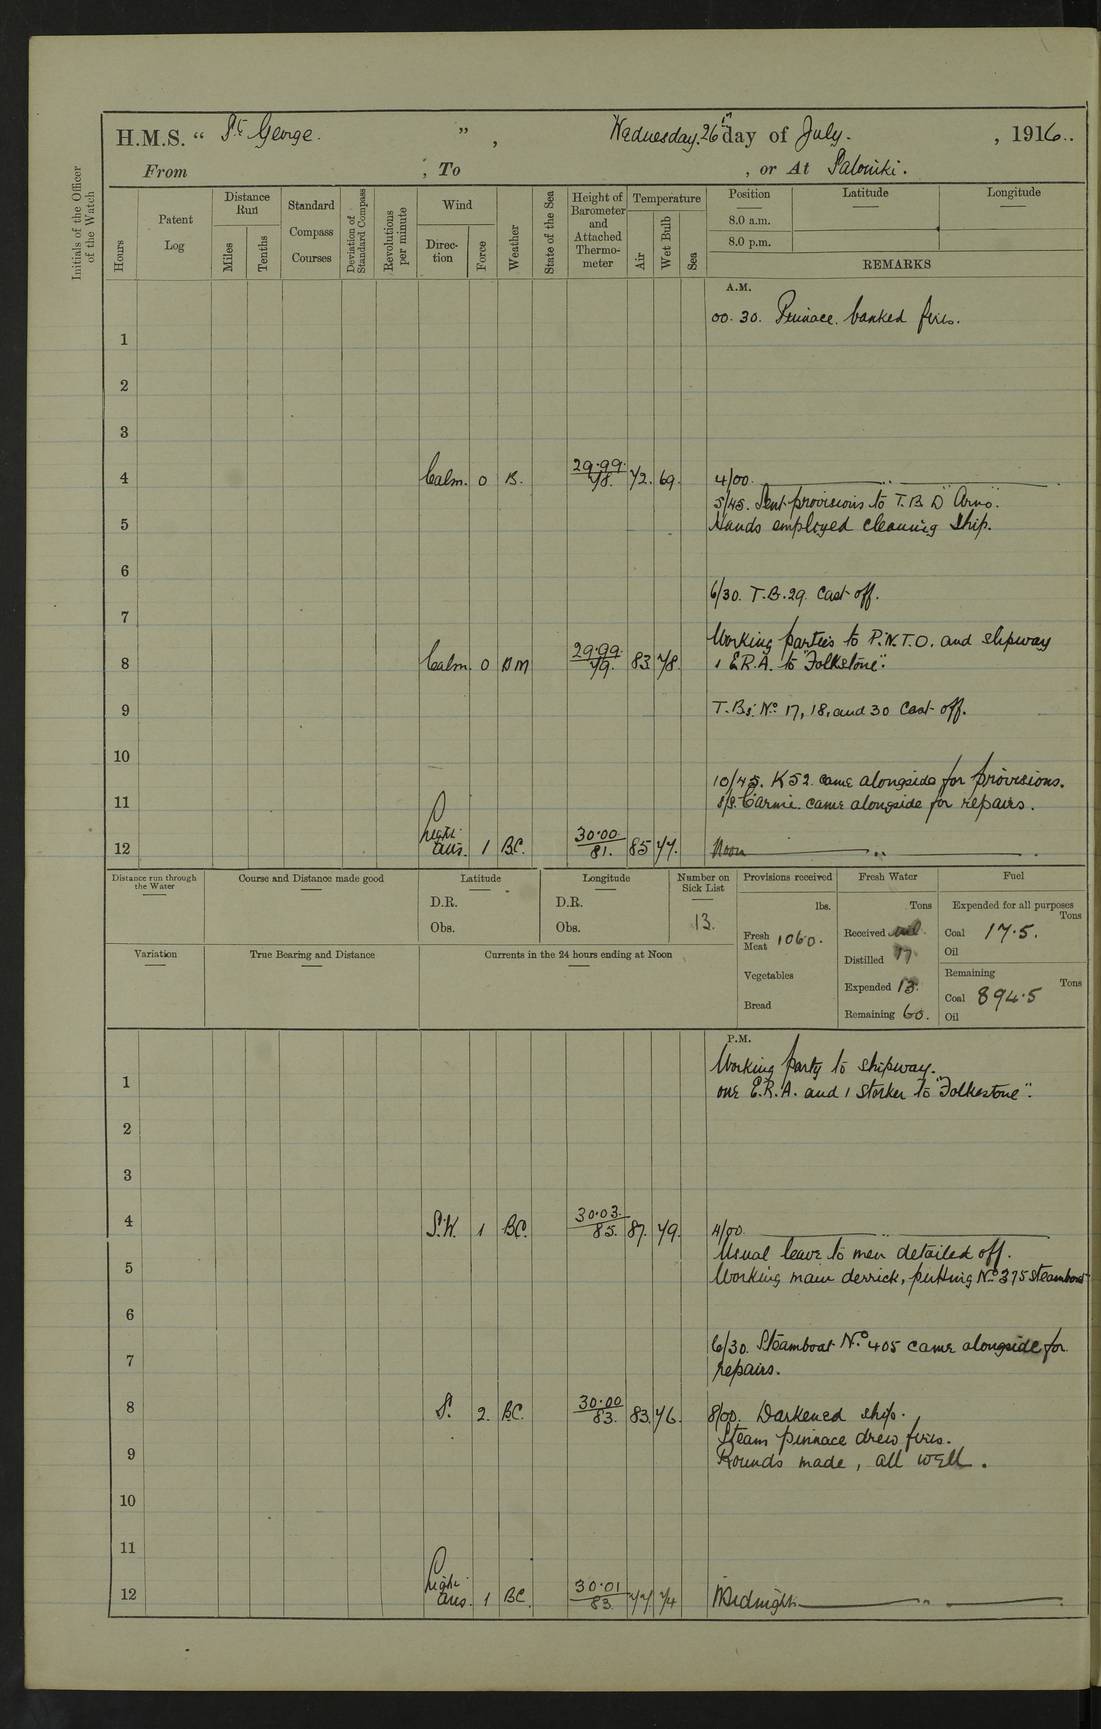 H.M.S. "St George.", Wednesday. 26th day of July., 1916..
From , To , or At Saloniki.
Initials of the Officer of the Watch
Hours
Patent Log
Distance Run
Miles
Tenths
Standard Compass Courses
Deviation of Standard Compass
Revolutions per minute
Wind
Direc-tion
Force
Weather
State of the Sea
Height of Barometer and Attached Thermo-meter
Temperature
Air
Wet Bulb
Sea
Position
Latitude
Longitude
8.0 a.m.
8.0 p.m.
REMARKS
A.M.
00.30. Pinnace. banked fires.
1
2
3
4 Calm. 0 B. 29.99. 78. 72. 69. 4/00.
5/45. Sent provisions to T.B.D "Arno".
5 Hands employed cleaning Ship.
6
6/30. T.B.29. Cast off.
7
Working parties to P.N.T.O. and slipway
8 Calm. 0 BM 29.99. 79. 83 78. 1 E.R.A. to "Folkstone".
9 T.Bs. No. 17, 18, and 30 Cast off.
10
10/45. K52. came alongside for provisions.
11 came alongside for repairs.
12 Light airs. 1 BC. 30.00. 81. 85 77. Noon
Distance run through the Water
Course and Distance made good
Latitude
D.R.
Obs.
Longitude
D.R.
Obs.
Number on Sick List
13.
Provisions received
lbs.
Fresh Meat 1060.
Vegetables
Bread
Fresh Water
Tons
Received nil.
Distilled 17
Expended 13.
Remaining 60.
Fuel
Expended for all purposes
Tons
Coal 17.5.
Oil
Remaining
Tons
Coal 894.5
Oil
Variation
True Bearing and Distance
Currents in the 24 hours ending at Noon
P.M.
Working party to slipway.
1 one E.R.A. and 1 Stoker to "Folkestone".
2
3
4 S.W. 1 BC. 30.03. 85. 87. 79. 4/00.
Usual leave to men detailed off.
5 Working main derrick, putting No. 375 steamboat
6
6/30. Steamboat No. 405 came alongside for
7 repairs.
8 S. 2. BC. 30.00 83. 83. 76. 8/00. Darkened ship.
Steam pinnace drew fires.
9 Rounds made, all well.
10
11
12 Light airs. 1 BC. 30.01 83. 77. 74 Midnight